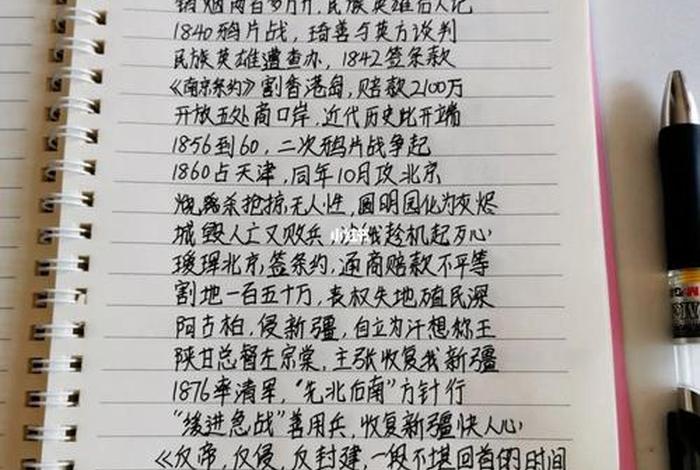 销烟两百多万斤,民族英雄后人记
1840鸦片战,琦善与英方谈判
民族英雄遭查办,1842签条款
《南京条约》割香港岛,赔款2100万
开放五处商口岸,近代历史此开端
1856到60,二次鸦片战争起
1860占天津,同年10月攻北京
烧杀抢掠无人性,圆明园化为灰烬
城毁人亡又败兵,沙俄趁机起歹心
瑷珲北京,签条约,通商赔款不平等
割地一百五十万,丧权失地殖民深
阿古柏,侵新疆,自立为汗想称王
陕甘总督左宗棠,主张收复我新疆
1876率清军,"先北后南"方针行
"缓进急战"善用兵,收复新疆快人心
《反帝,反侵,反封建,一段不堪回首的时间